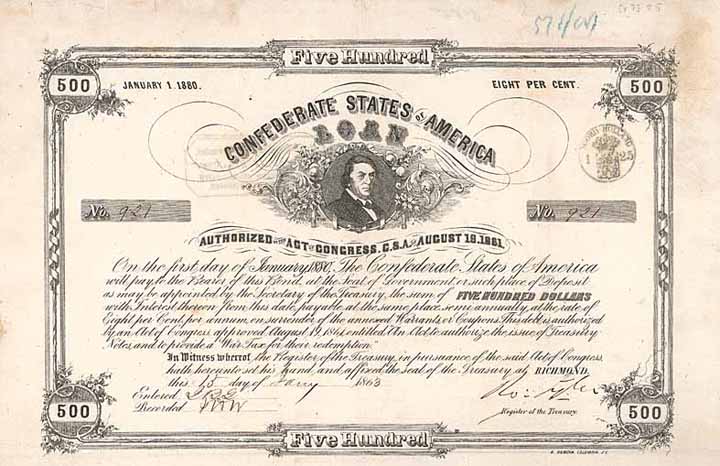 Five Hundred
500
JANUARY 1. 1880.
EIGHT PER CENT.
500
CONFEDERATE STATES OF AMERICA
LOAN
No. 921
No. 921
AUTHORIZED BY THE ACT OF CONGRESS, C.S.A. OF AUGUST 19. 1861.
On the first day of January 1880, The Confederate States of America
will pay to the Bearer of this Bond, at the Seat of Government, or such place of Deposit
as may be appointed by the Secretary of the Treasury, the sum of FIVE HUNDRED DOLLARS
with Interest thereon from this date, payable at the same place, semi annually, at the rate of
Eight per Cent. per annum, on surrender of the annexed Warrants, or Coupons. This debt is authorized
by an Act of Congress, approved August 19, 1861, entitled An Act to authorize the issue of Treasury
Notes, and to provide a War Tax for their redemption.
In Witness whereof the Register of the Treasury, in pursuance of the said Act of Congress,
hath hereunto set his hand, and affixed the seal of the Treasury, at RICHMOND,
this 15 day of Jany 1863
Entered
Recorded
Register of the Treasury.
500
500
Five Hundred